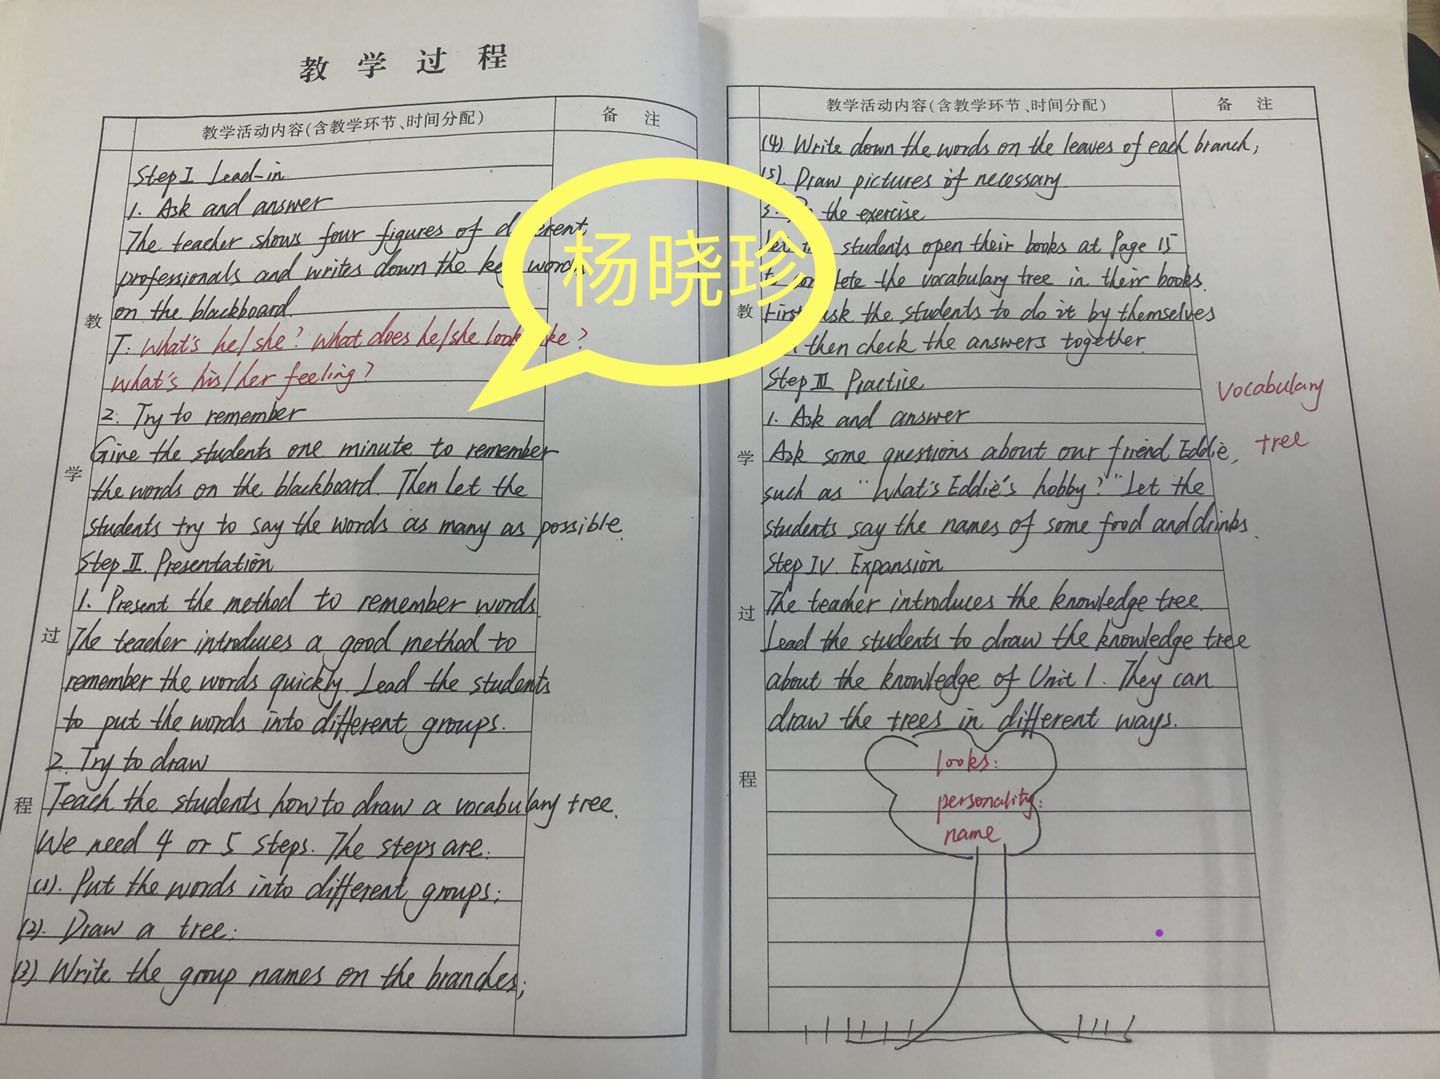 教学过程
教学活动内容(含教学环节、时间分配)
备注
Step I Lead-in
1. Ask and answer
The teacher shows four figures of different
professionals and writes down the key words
on the blackboard.
T: What's he/she? What does he/she look like?
What's his/her feeling?
2. Try to remember
Give the students one minute to remember
the words on the blackboard. Then let the
students try to say the words as many as possible.
Step II. Presentation
1. Present the method to remember words
The teacher introduces a good method to
remember the words quickly. Lead the students
to put the words into different groups.
2. Try to draw
Teach the students how to draw a vocabulary tree.
We need 4 or 5 steps. The steps are:
(1). Put the words into different groups;
(2). Draw a tree;
(3) Write the group names on the branches;
教
学
过
程
杨晓珍
教学活动内容(含教学环节、时间分配)
备注
(4) Write down the words on the leaves of each branch;
(5). Draw pictures if necessary
3. the exercise
students open their books at Page 15
the vocabulary tree in their books.
First ask the students to do it by themselves
then check the answers together.
Step III Practice
1. Ask and answer
Ask some questions about our friend Eddie,
such as "What's Eddie's hobby?" Let the
students say the names of some food and drinks.
Step IV. Expansion
The teacher introduces the knowledge tree.
Lead the students to draw the knowledge tree
about the knowledge of Unit 1. They can
draw the trees in different ways.
looks:
personality:
name
教
学
过
程
Vocabulary
tree